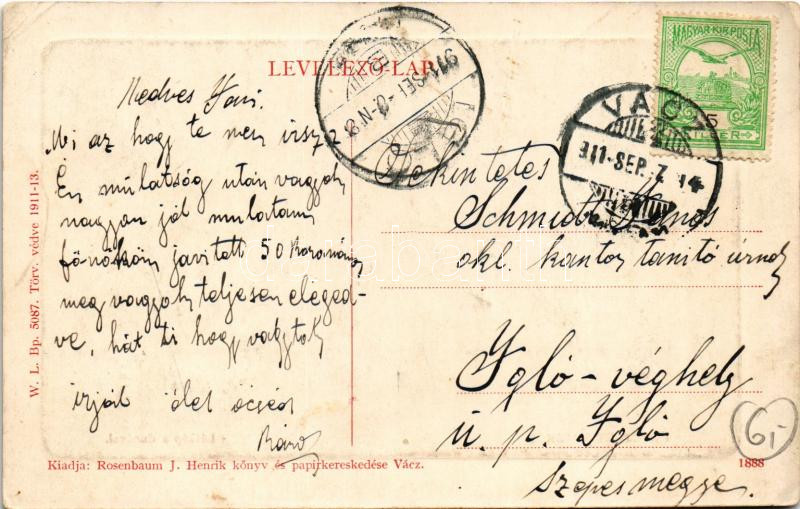 LEVELEZŐ-LAP
MAGYAR KIR. POSTA
5
VÁCZ
911-SEP. 7
IGLÓ
911 SEP -8
Kedves Jani.
Mi az hogy te nem irsz?
Én mulatság után vagyok
nagyon jól mulatam
főnököm javitott 50 koronával
meg vagyok teljesen eleged-
ve, hát ti hogy vagytok
irjál ölel öcséd
Károly
Tekintetes
Schmidt János
okl. kantor tanitó urnak
Igló-véghely
u. p. Igló
Szepes megye.
6,-
W. L. Bp. 5087. Törv. védve 1911-13.
Kiadja: Rosenbaum J. Henrik könyv és papirkereskedése Vácz.
1888